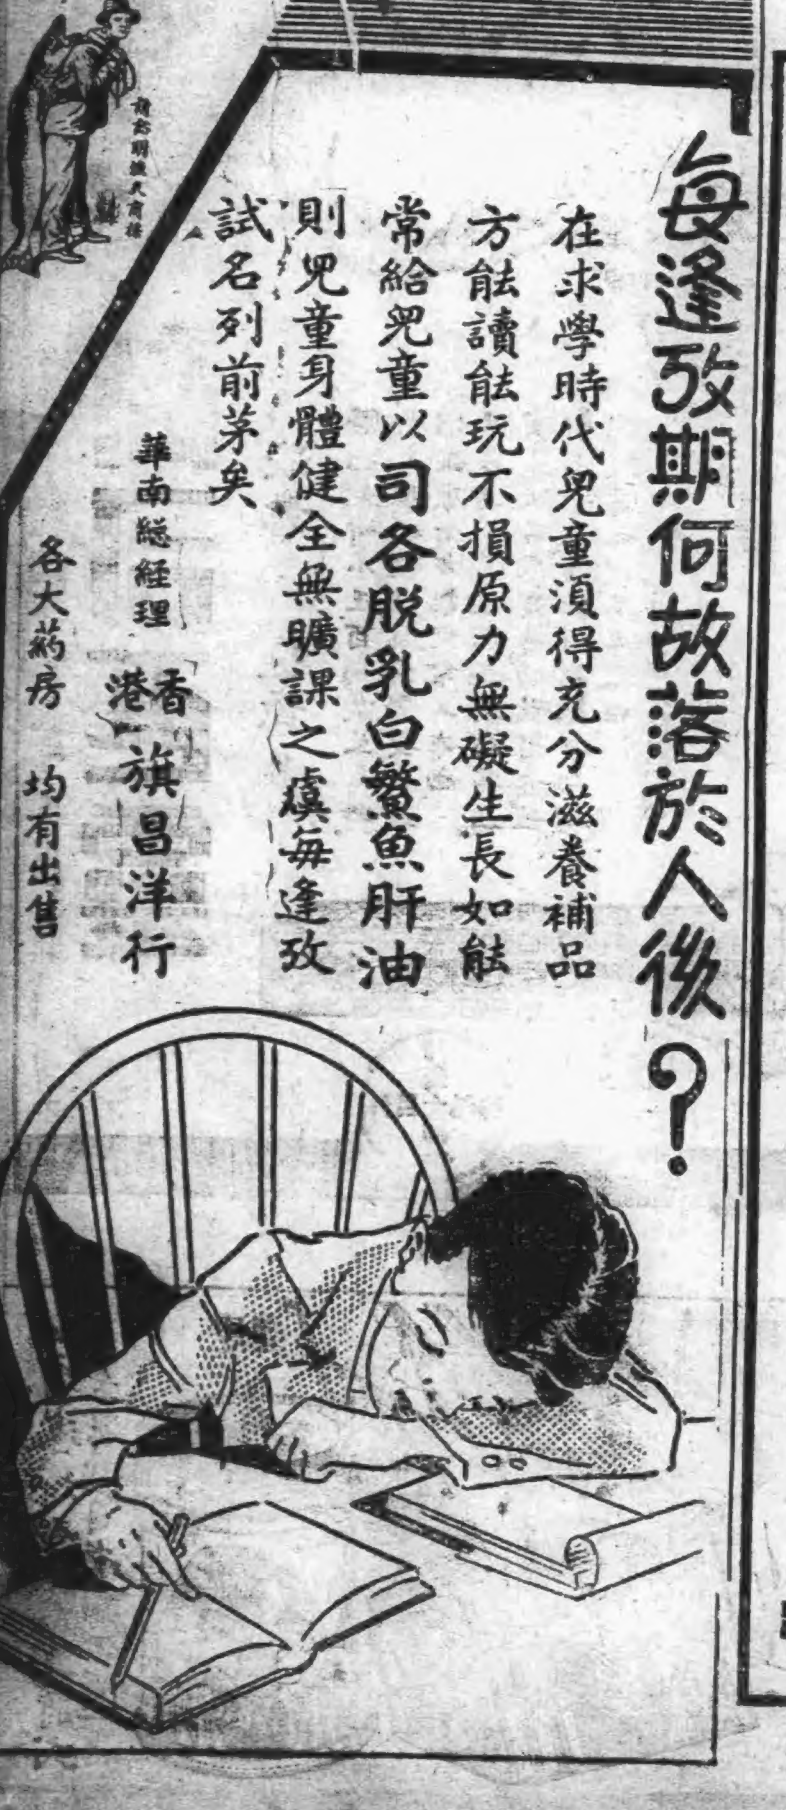 每逢攷期何故落於人後？
在求學時代兒童須得充分滋養補品
方能讀能玩不損原力無礙生長如能
常給兒童以司各脱乳白鱉魚肝油
則兒童身體健全無曠課之虞每逢攷
試名列前茅矣
華南總經理
香港
旗昌洋行
各大药房 均有出售